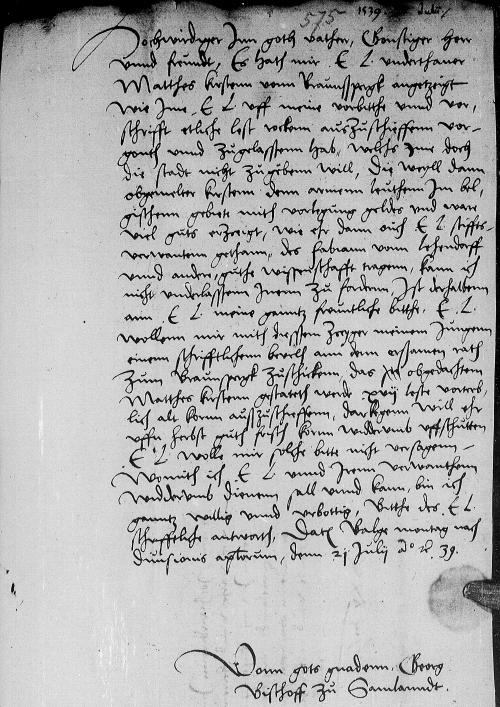 575 1539. Julii
Hochwirdiger Inn goth vather, Gonstiger herr
vnnd freundt, Es hath mir E L vnderthaner
Matthes kirstenn vom Braunspergk angezeigt
wie Ime E L vff meine vorbitthe vnnd vor,
schrifft etliche lest rocken auszuschiffenn vor,
gonth vnnd zugelassenn hab, welchs Ime doch
die stadt nicht zugebenn will, Die weyll dann
obgemelter kirstenn denn armenn leuthenn Im bal,
gischenn gebiete mith vorlegung geldes vnd ware
viel guts erzeigt, wie ehr dann auch E L stiffts,
verwantenn gethann, des Fabiann vom Lehendorff
vnnd ander, guthe wissenschafft tragenn, kann ich
nicht vnderlassenn Inenn zu fordern, Ist derhalbenn
ann E L meine gantz freuntliche bitthe, E. L.
wollenn mir mith diessenn zeyger meinem Jungenn
einenn schrifftlichenn bevelh ann denn ersamen rath
zum Braunspergk zuschickenn, das obgedachtem
Matthes kirstenn gestateth werde xvij leste
lich alt kornn auszuschieffenn, darkegenn will ehr
vffn herbst guth frisch kornn widderumb vffschutten
E L wolle mir solche bitte nicht versagenn
Womith ich E L vnnd Irenn verwanthenn
widderumb dienenn sall vnnd kann, bin ich
gantz willig vnnd erbottig, Bitthe des E L
schrifftliche antworth, Dat Balge montag nach
diuisionis aplorum, denn 21 Julij Ao 39.
Vonn gots gnadenn, Georg
Bischoff zu Samlanndt.